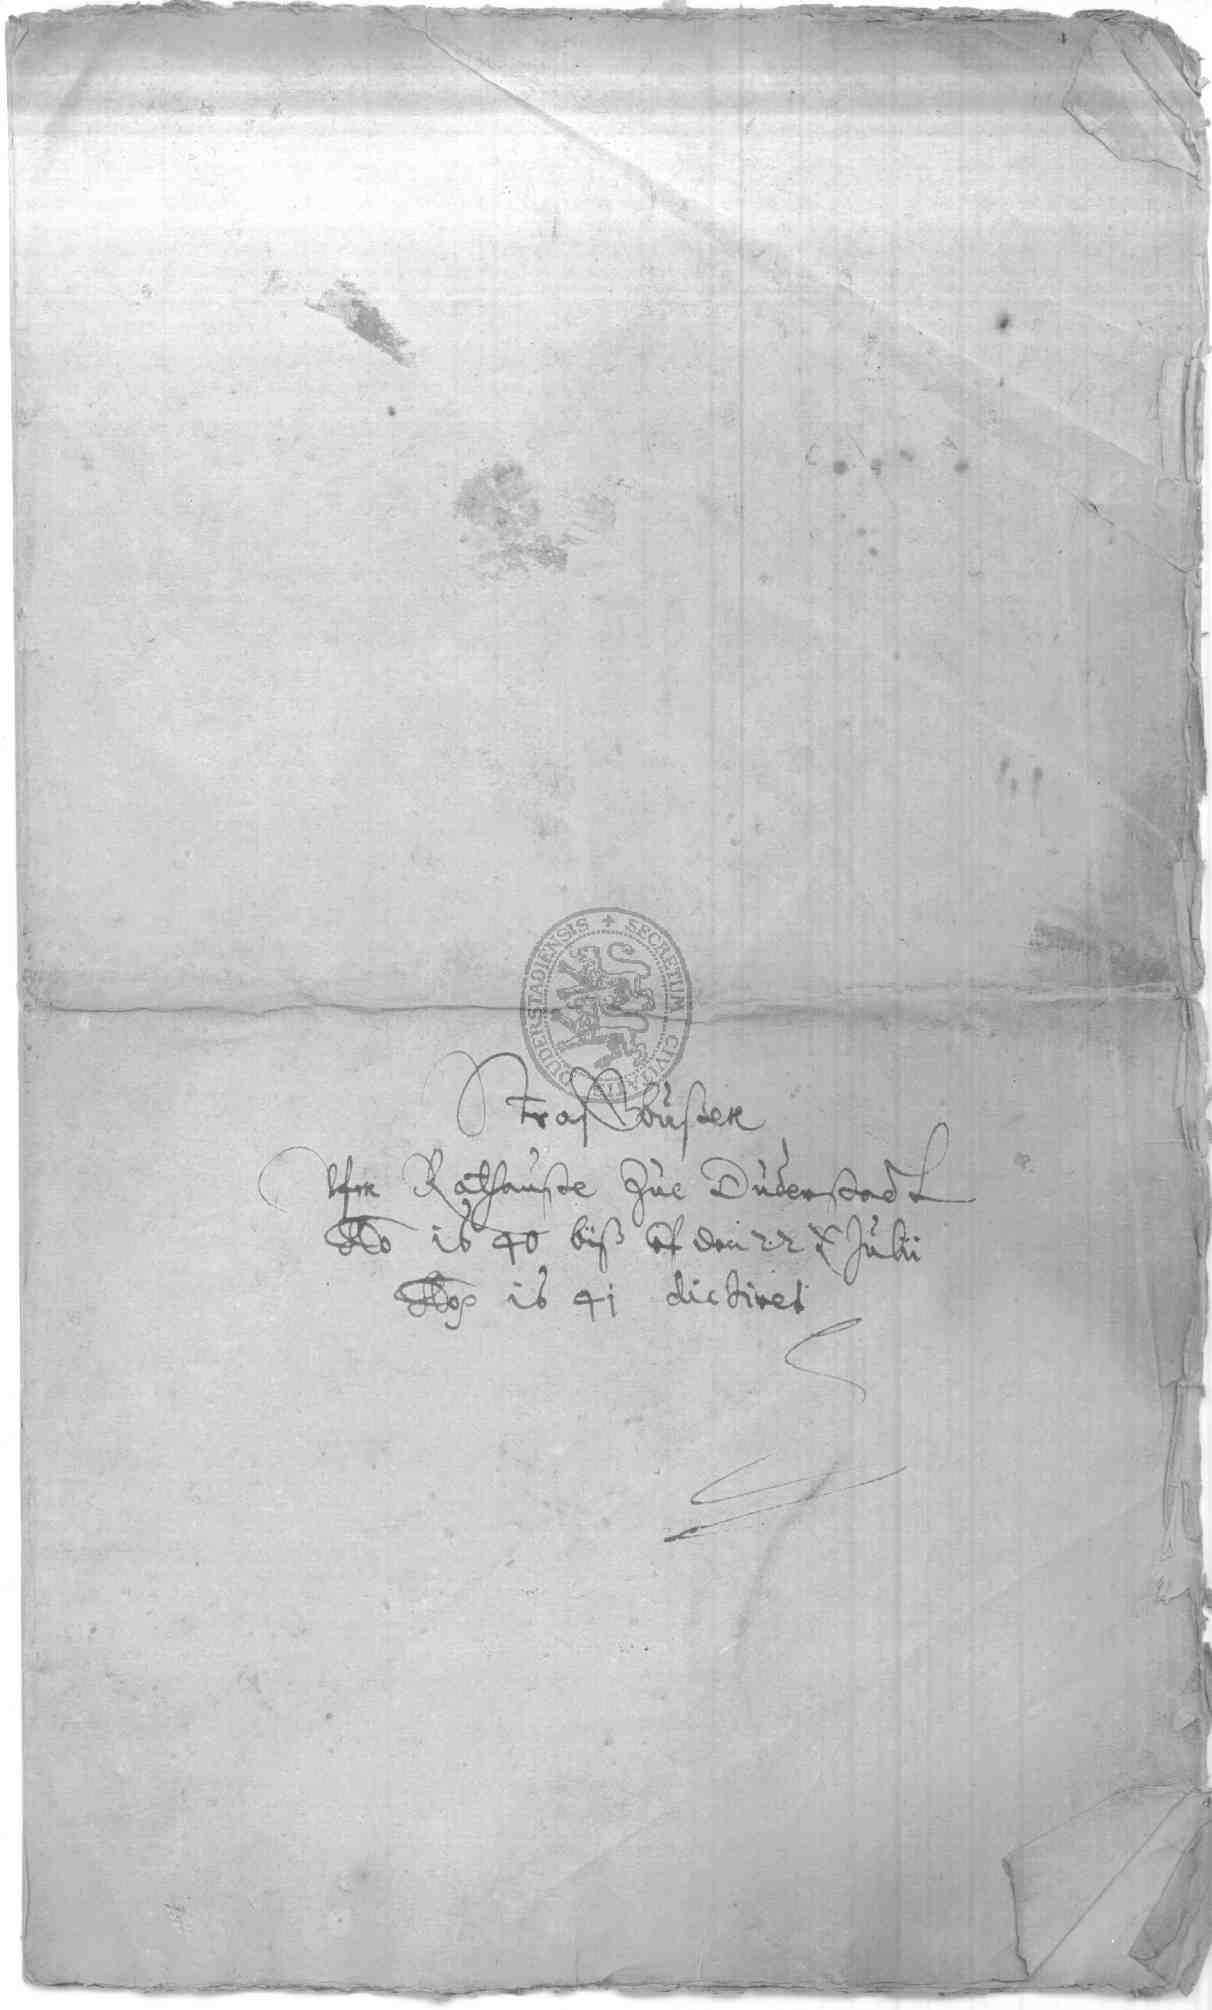 SECRETUM CIVITATIS DUDERSTADIENSIS
Straffbußen
Ufm Rathauße zue Duderstadt
Ao 1640 biß uf den 22 Julii
Ao 1641 dictiret